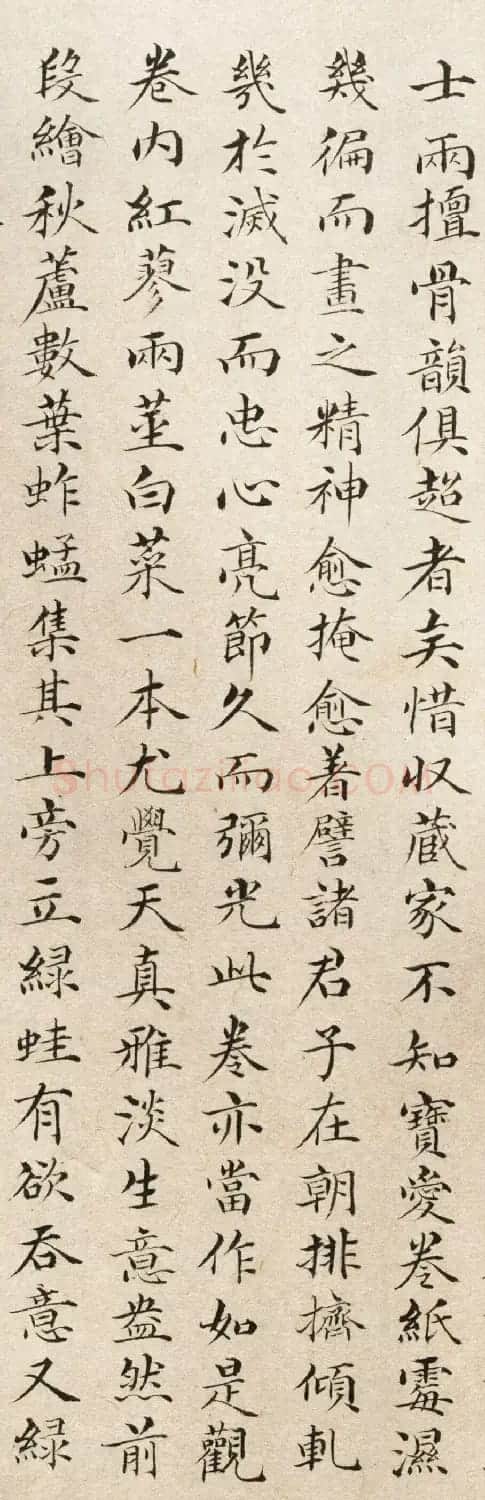 士兩擅骨韻俱超者矣惜収蔵家不知寶愛卷紙霉濕
幾徧而畫之精神愈掩愈著譬諸君子在朝排擠傾軋
幾於滅没而忠心亮節久而彌光此卷亦當作如是觀
卷内紅蓼兩莖白菜一本尤覺天真雅淡生意盎然前
段繪秋蘆數葉蚱蜢集其上旁立緑蛙有欲吞意又緑